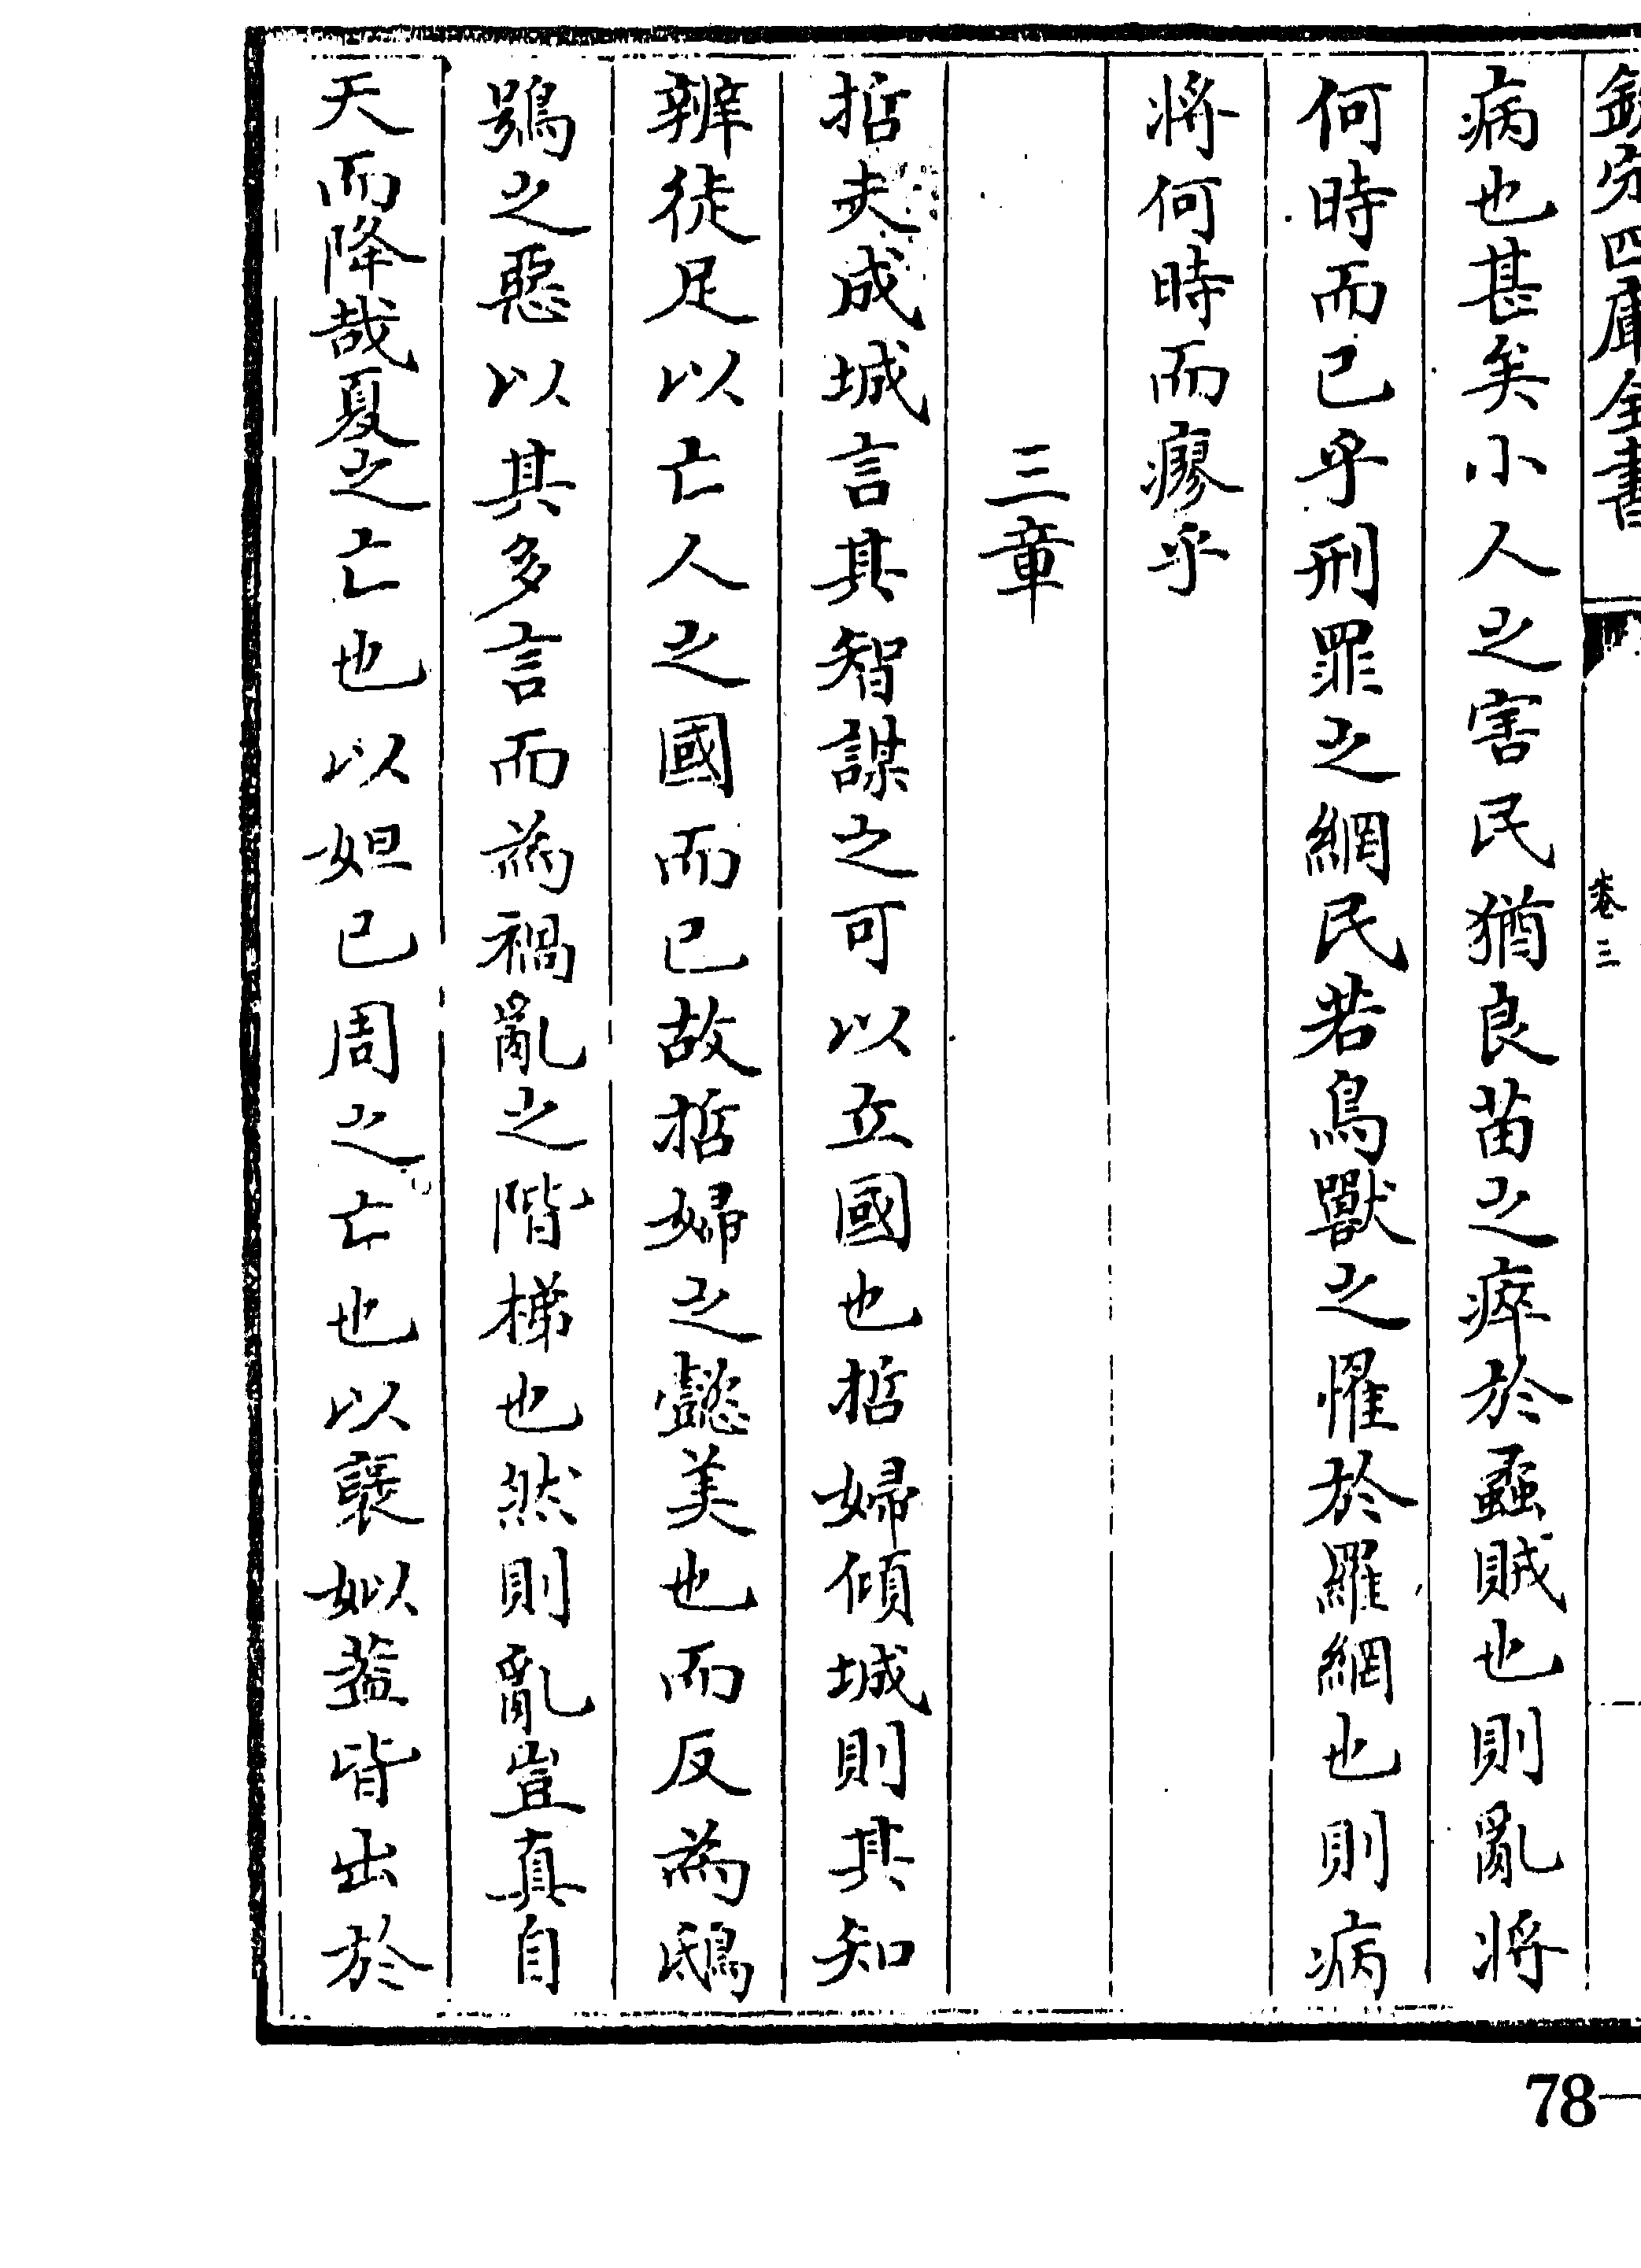 欽定四庫全書
卷三
病也甚矣小人之害民猶良苗之瘁於蟊賊也則亂將
何時而已乎刑罪之網民若鳥獸之罹於羅網也則病
將何時而瘳乎
三章
哲夫成城言其智謀之可以立國也哲婦傾城則其知
辨徒足以亡人之國而已故哲婦之懿美也而反為鴟
鴞之惡以其多言而為禍亂之階梯也然則亂豈真自
天而降哉夏之亡也以妲已周之亡也以褒姒葢皆出於
78—